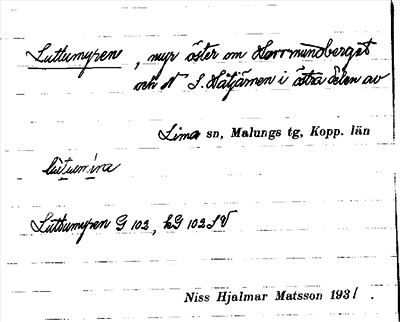 Luttumyren, myr öster om Horrmundberget
och N S. Håtjärnen i östra delen av
Lima sn, Malungs tg, Kopp. län
lùtumìra
Luttumyren G 102, kG 102 SV
Niss Hjalmar Matsson 1931.